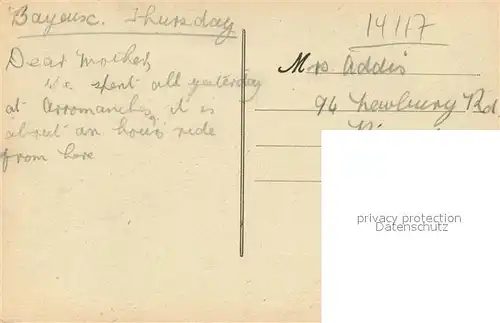 Bayeux. Thursday
Dear Mother,
We spent all yesterday
at Arromanches, it is
about an hours ride
from here
14117
Mrs Addis
94 Newbury Rd
privacy protection
Datenschutz